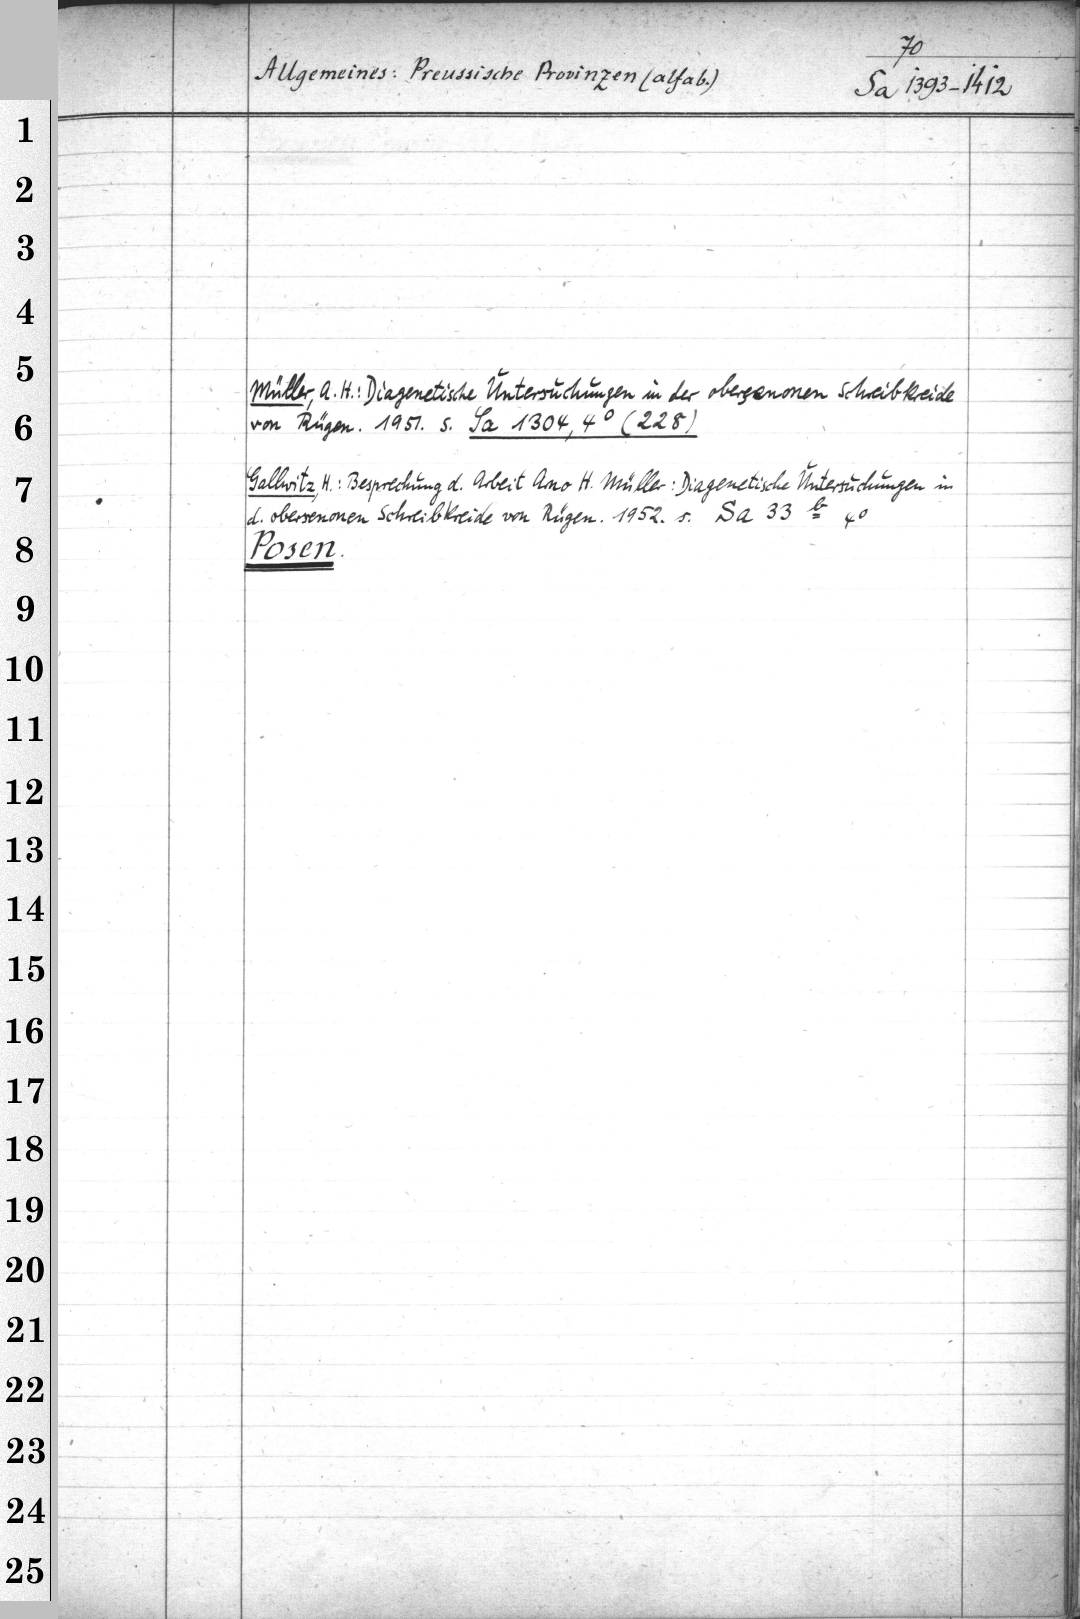 70
Allgemeines: Preussische Provinzen (alfab.) Sa 1393-1412
1
2
3
4
5
Müller, A. H.: Diagenetische Untersuchungen in der obersenonen Schreibkreide
6
von Rügen. 1951. s. Sa 1304, 4° (228)
7
Gallwitz, H.: Besprechung d. Arbeit Arno H. Müller: Diagenetische Untersuchungen in
d. obersenonen Schreibkreide von Rügen. 1952. s. Sa 33 b 4°
8
Posen.
9
10
11
12
13
14
15
16
17
18
19
20
21
22
23
24
25